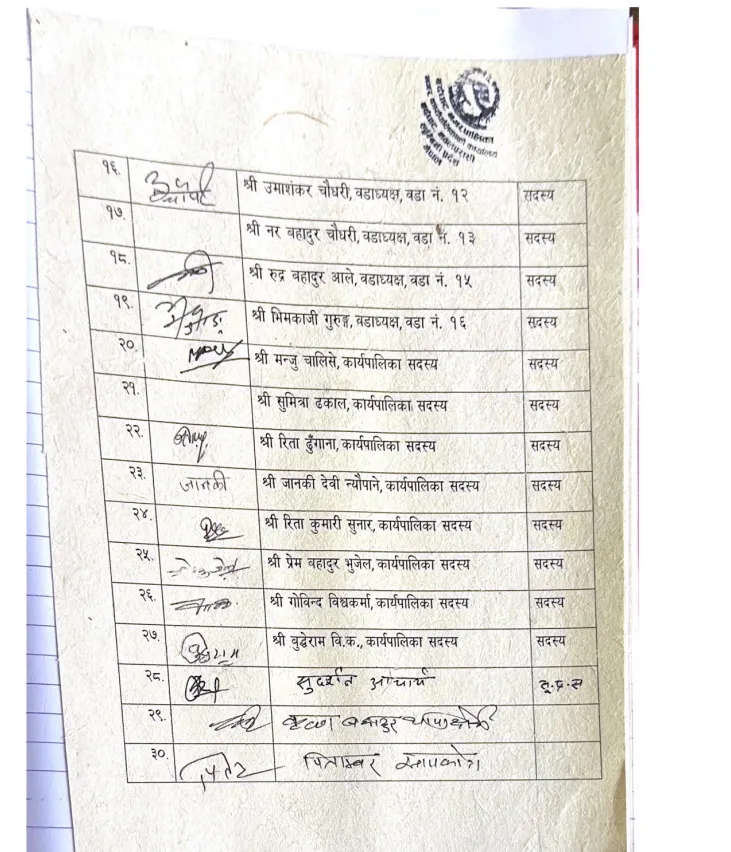 बर्दघाट नगरपालिका
नगर कार्यपालिकाको कार्यालय
बर्दघाट, नवलपरासी
लुम्बिनी प्रदेश
नेपाल
१६. श्री उमाशंकर चौधरी, वडाध्यक्ष, वडा नं. १२ सदस्य
१७. श्री नर बहादुर चौधरी, वडाध्यक्ष, वडा नं. १३ सदस्य
१८. श्री रुद्र बहादुर आले, वडाध्यक्ष, वडा नं. १५ सदस्य
१९. श्री भिमकाजी गुरुङ्ग, वडाध्यक्ष, वडा नं. १६ सदस्य
२०. श्री मन्जु चालिसे, कार्यपालिका सदस्य सदस्य
२१. श्री सुमित्रा ढकाल, कार्यपालिका सदस्य सदस्य
२२. श्री रिता ढुँगाना, कार्यपालिका सदस्य सदस्य
२३. जानकी श्री जानकी देवी न्यौपाने, कार्यपालिका सदस्य सदस्य
२४. श्री रिता कुमारी सुनार, कार्यपालिका सदस्य सदस्य
२५. श्री प्रेम बहादुर भुजेल, कार्यपालिका सदस्य सदस्य
२६. श्री गोविन्द विश्वकर्मा, कार्यपालिका सदस्य सदस्य
२७. श्री बुद्धेराम वि.क., कार्यपालिका सदस्य सदस्य
२८. सुदर्शन आचार्य
२९.
३०. पिताम्बर सापकोटा